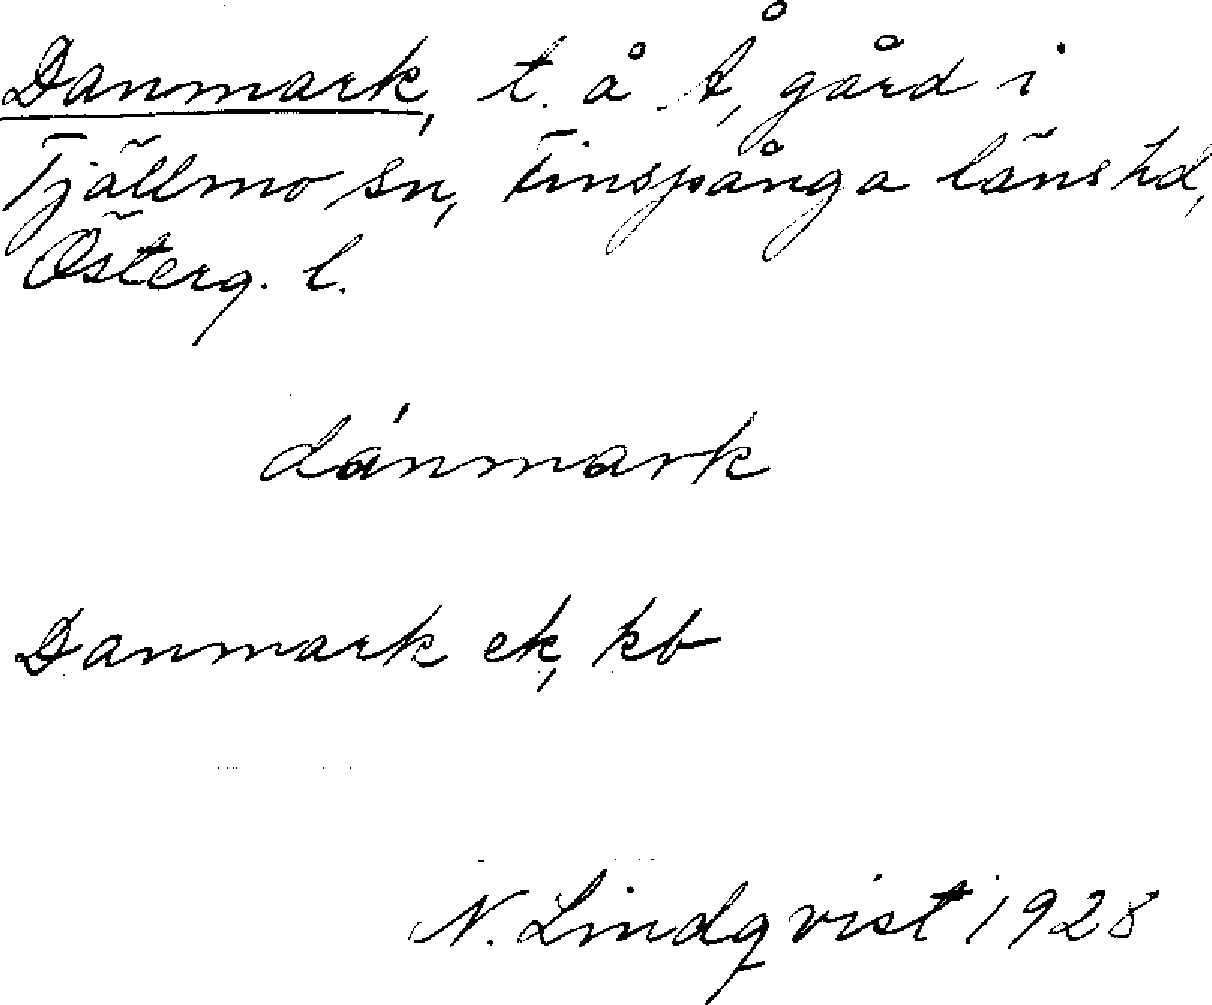 Danmark, t. å Å, gård i
Tjällmo sn, Finspånga läns hd,
Österg. l.
dánmark
Danmark ek, kb
N. Lindqvist 1928